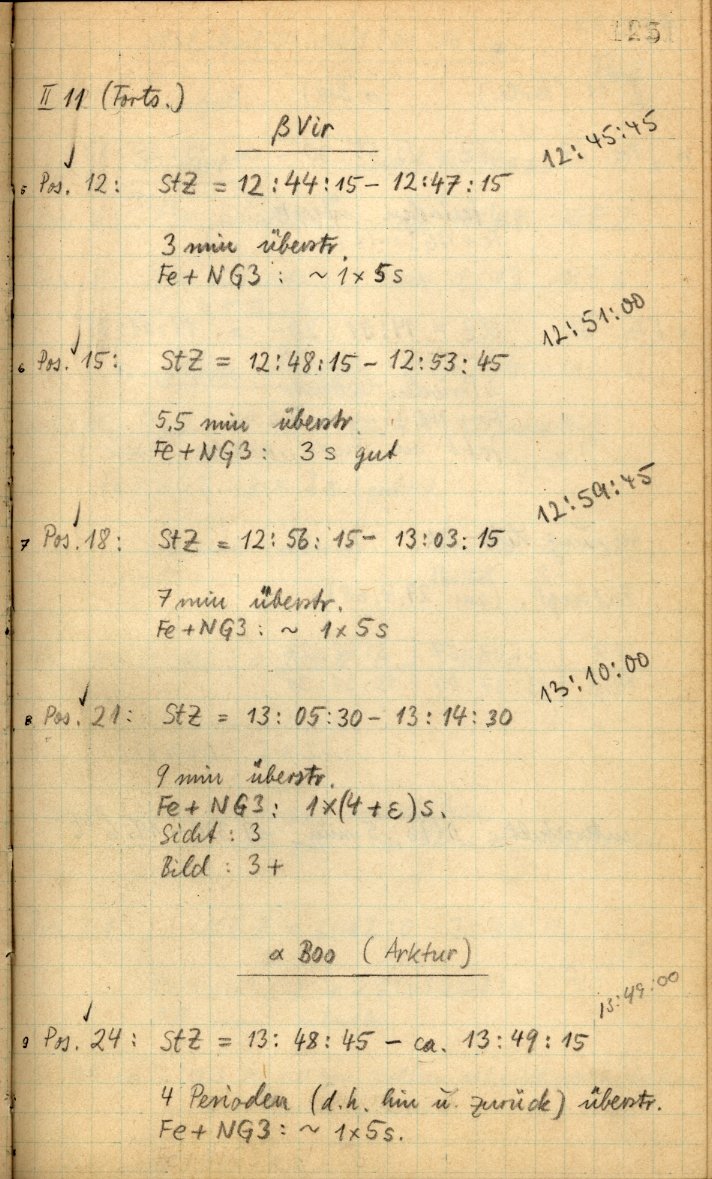 125
II 11 (Forts.)
β Vir
12:45:45
5 Pos. 12: StZ = 12:44:15 - 12:47:15
3 min überstr.
Fe + NG3 : ~ 1 x 5 s
12:51:00
6 Pos. 15: StZ = 12:48:15 - 12:53:45
5,5 min überstr.
Fe + NG3 : 3 s gut
12:59:45
7 Pos. 18: StZ = 12:56:15 - 13:03:15
7 min überstr.
Fe + NG3 : ~ 1 x 5 s
13:10:00
8 Pos. 21: StZ = 13:05:30 - 13:14:30
9 min überstr.
Fe + NG3 : 1 x (4 + ε) s.
Sicht : 3
Bild : 3 +
α Boo (Arktur)
13:49:00
9 Pos. 24: StZ = 13:48:45 - ca. 13:49:15
4 Perioden (d.h. hin u. zurück) überstr.
Fe + NG3 : ~ 1 x 5 s.